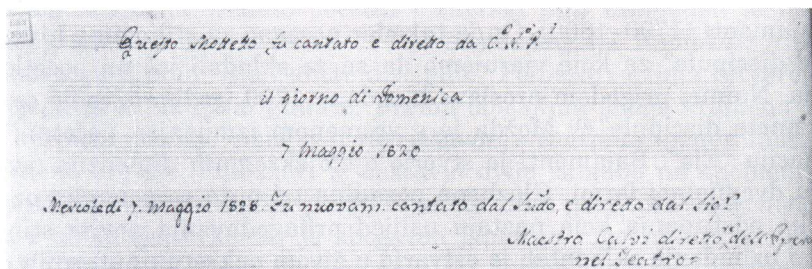 Questo Mottetto fu cantato e diretto da
il giorno di Domenica
7 Maggio 1820
Mercoledì 7. Maggio 1828. Fu nuovam. cantato dal Sudo, e diretto dal Sigr.
Maestro Calvi dirett.re dell'Opera
nel Teatro